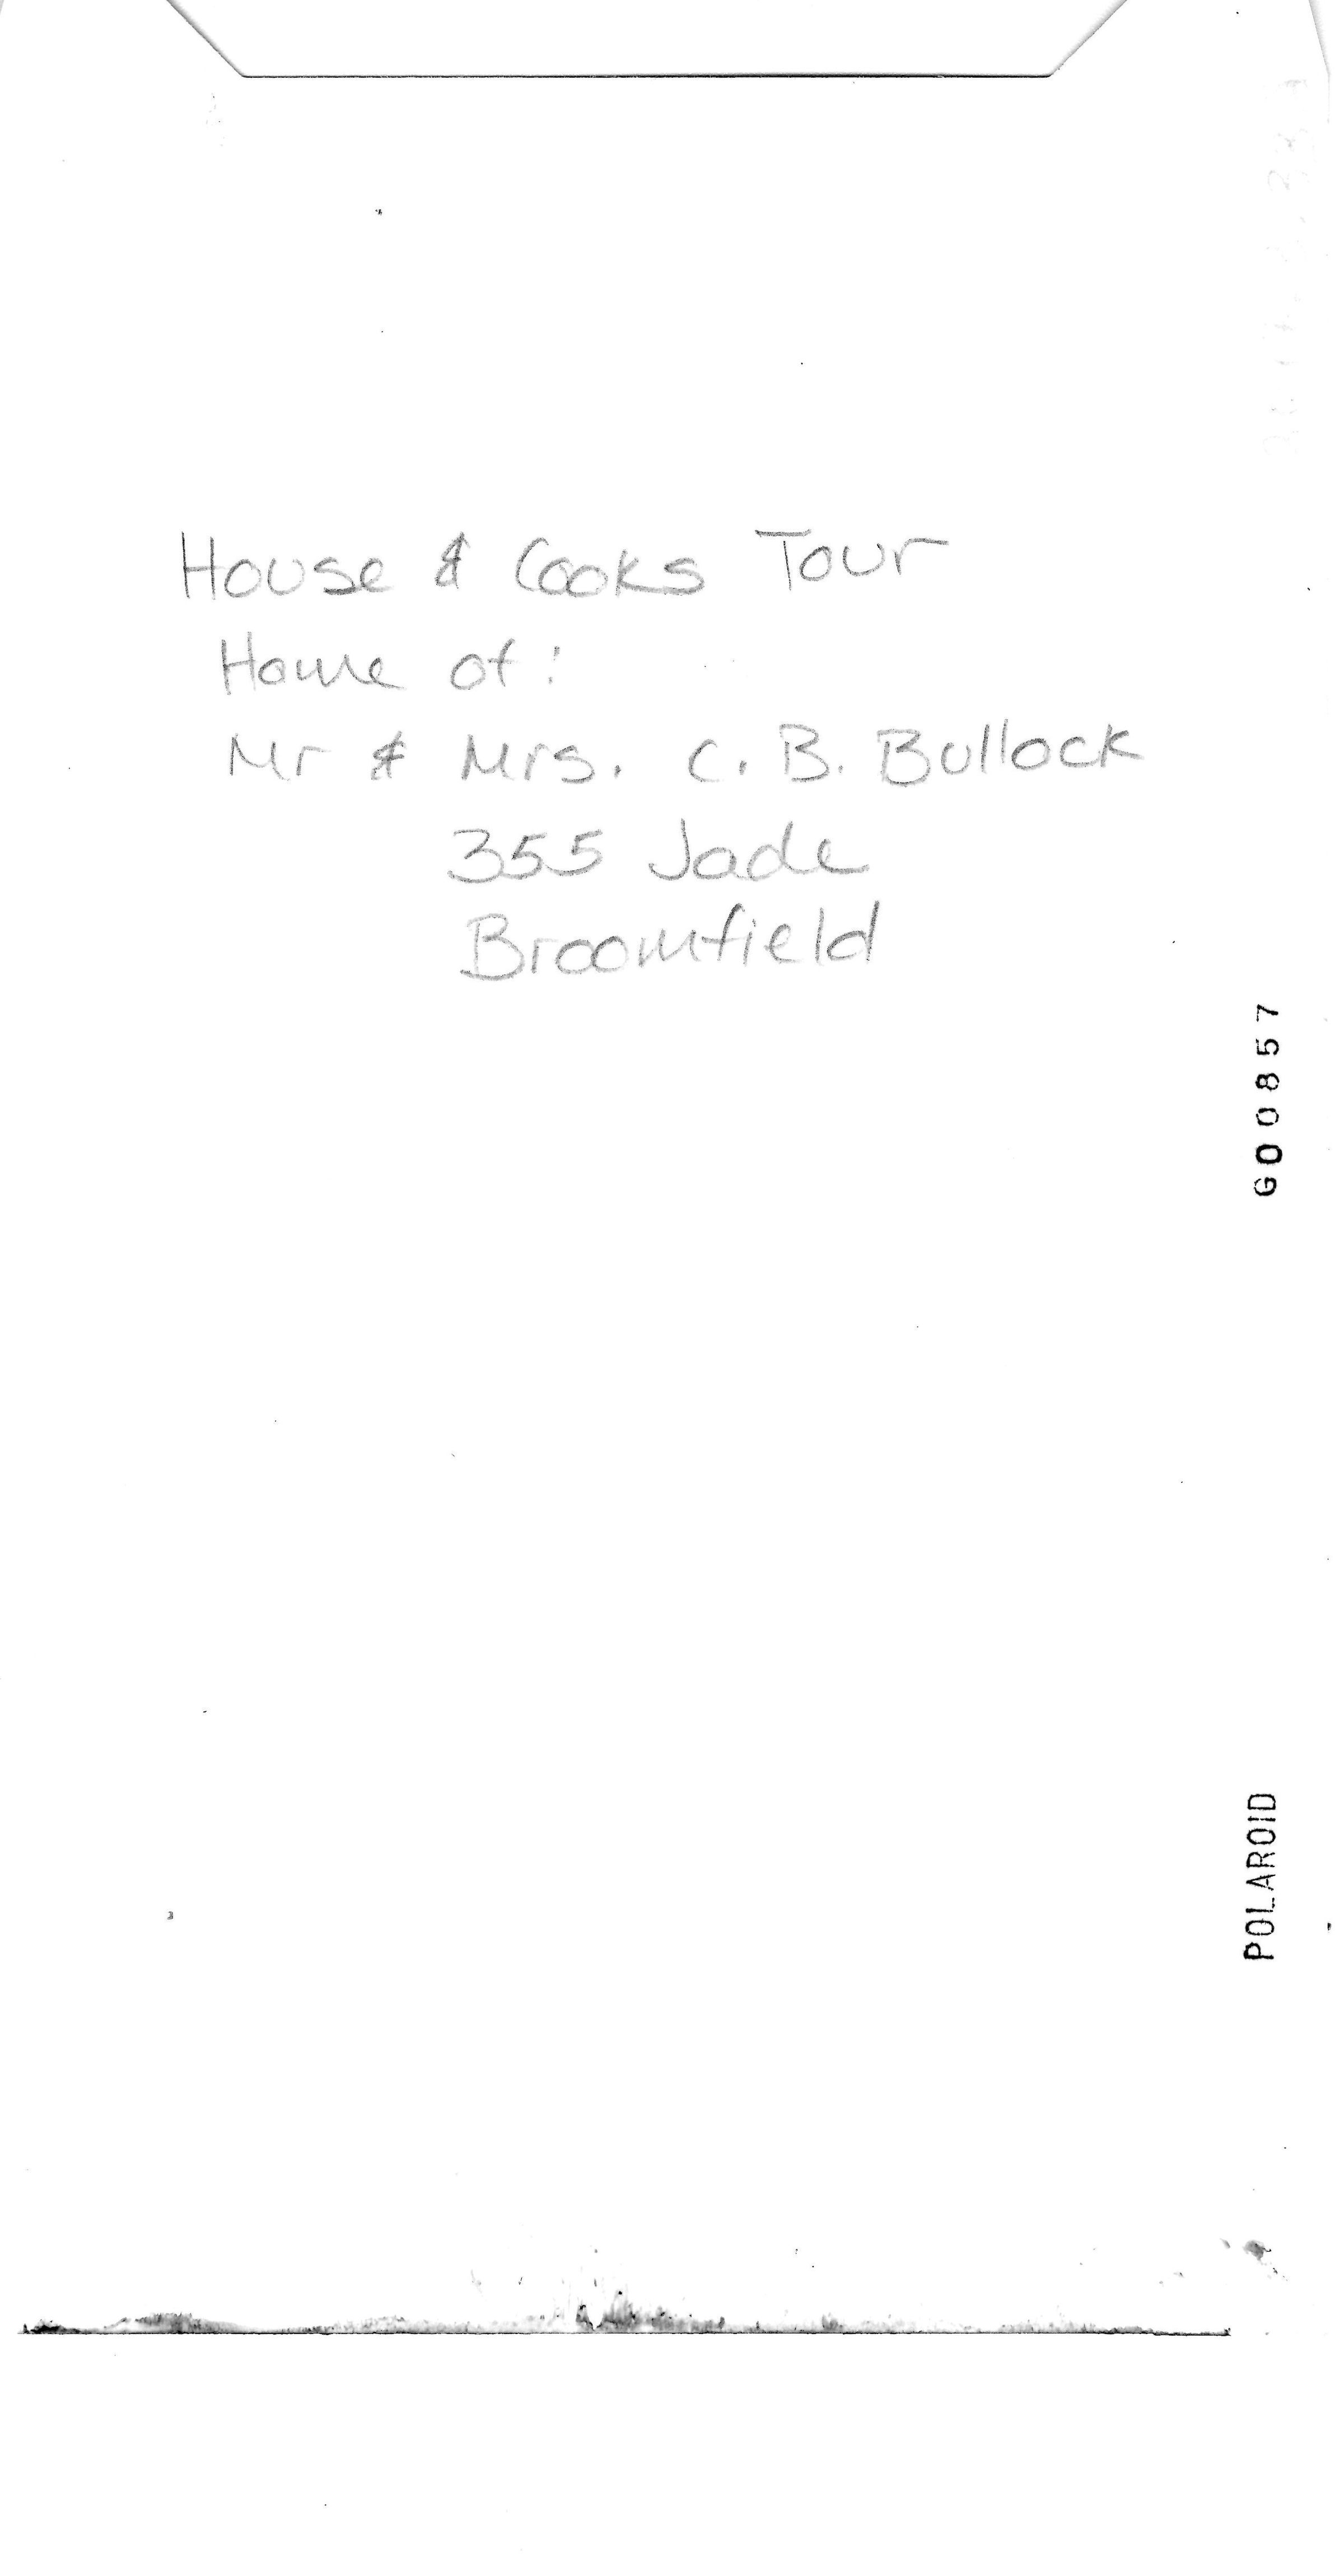 House & Cooks Tour
Home of:
Mr & Mrs. C. B. Bullock
355 Jade
Broomfield
G00857
POLAROID